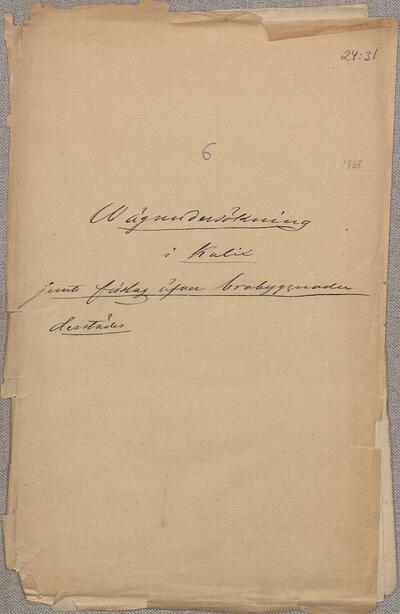 24:31
6
1868
Wägundersökning
i Kalix
jemte förslag öfver brobyggnader
derstädes